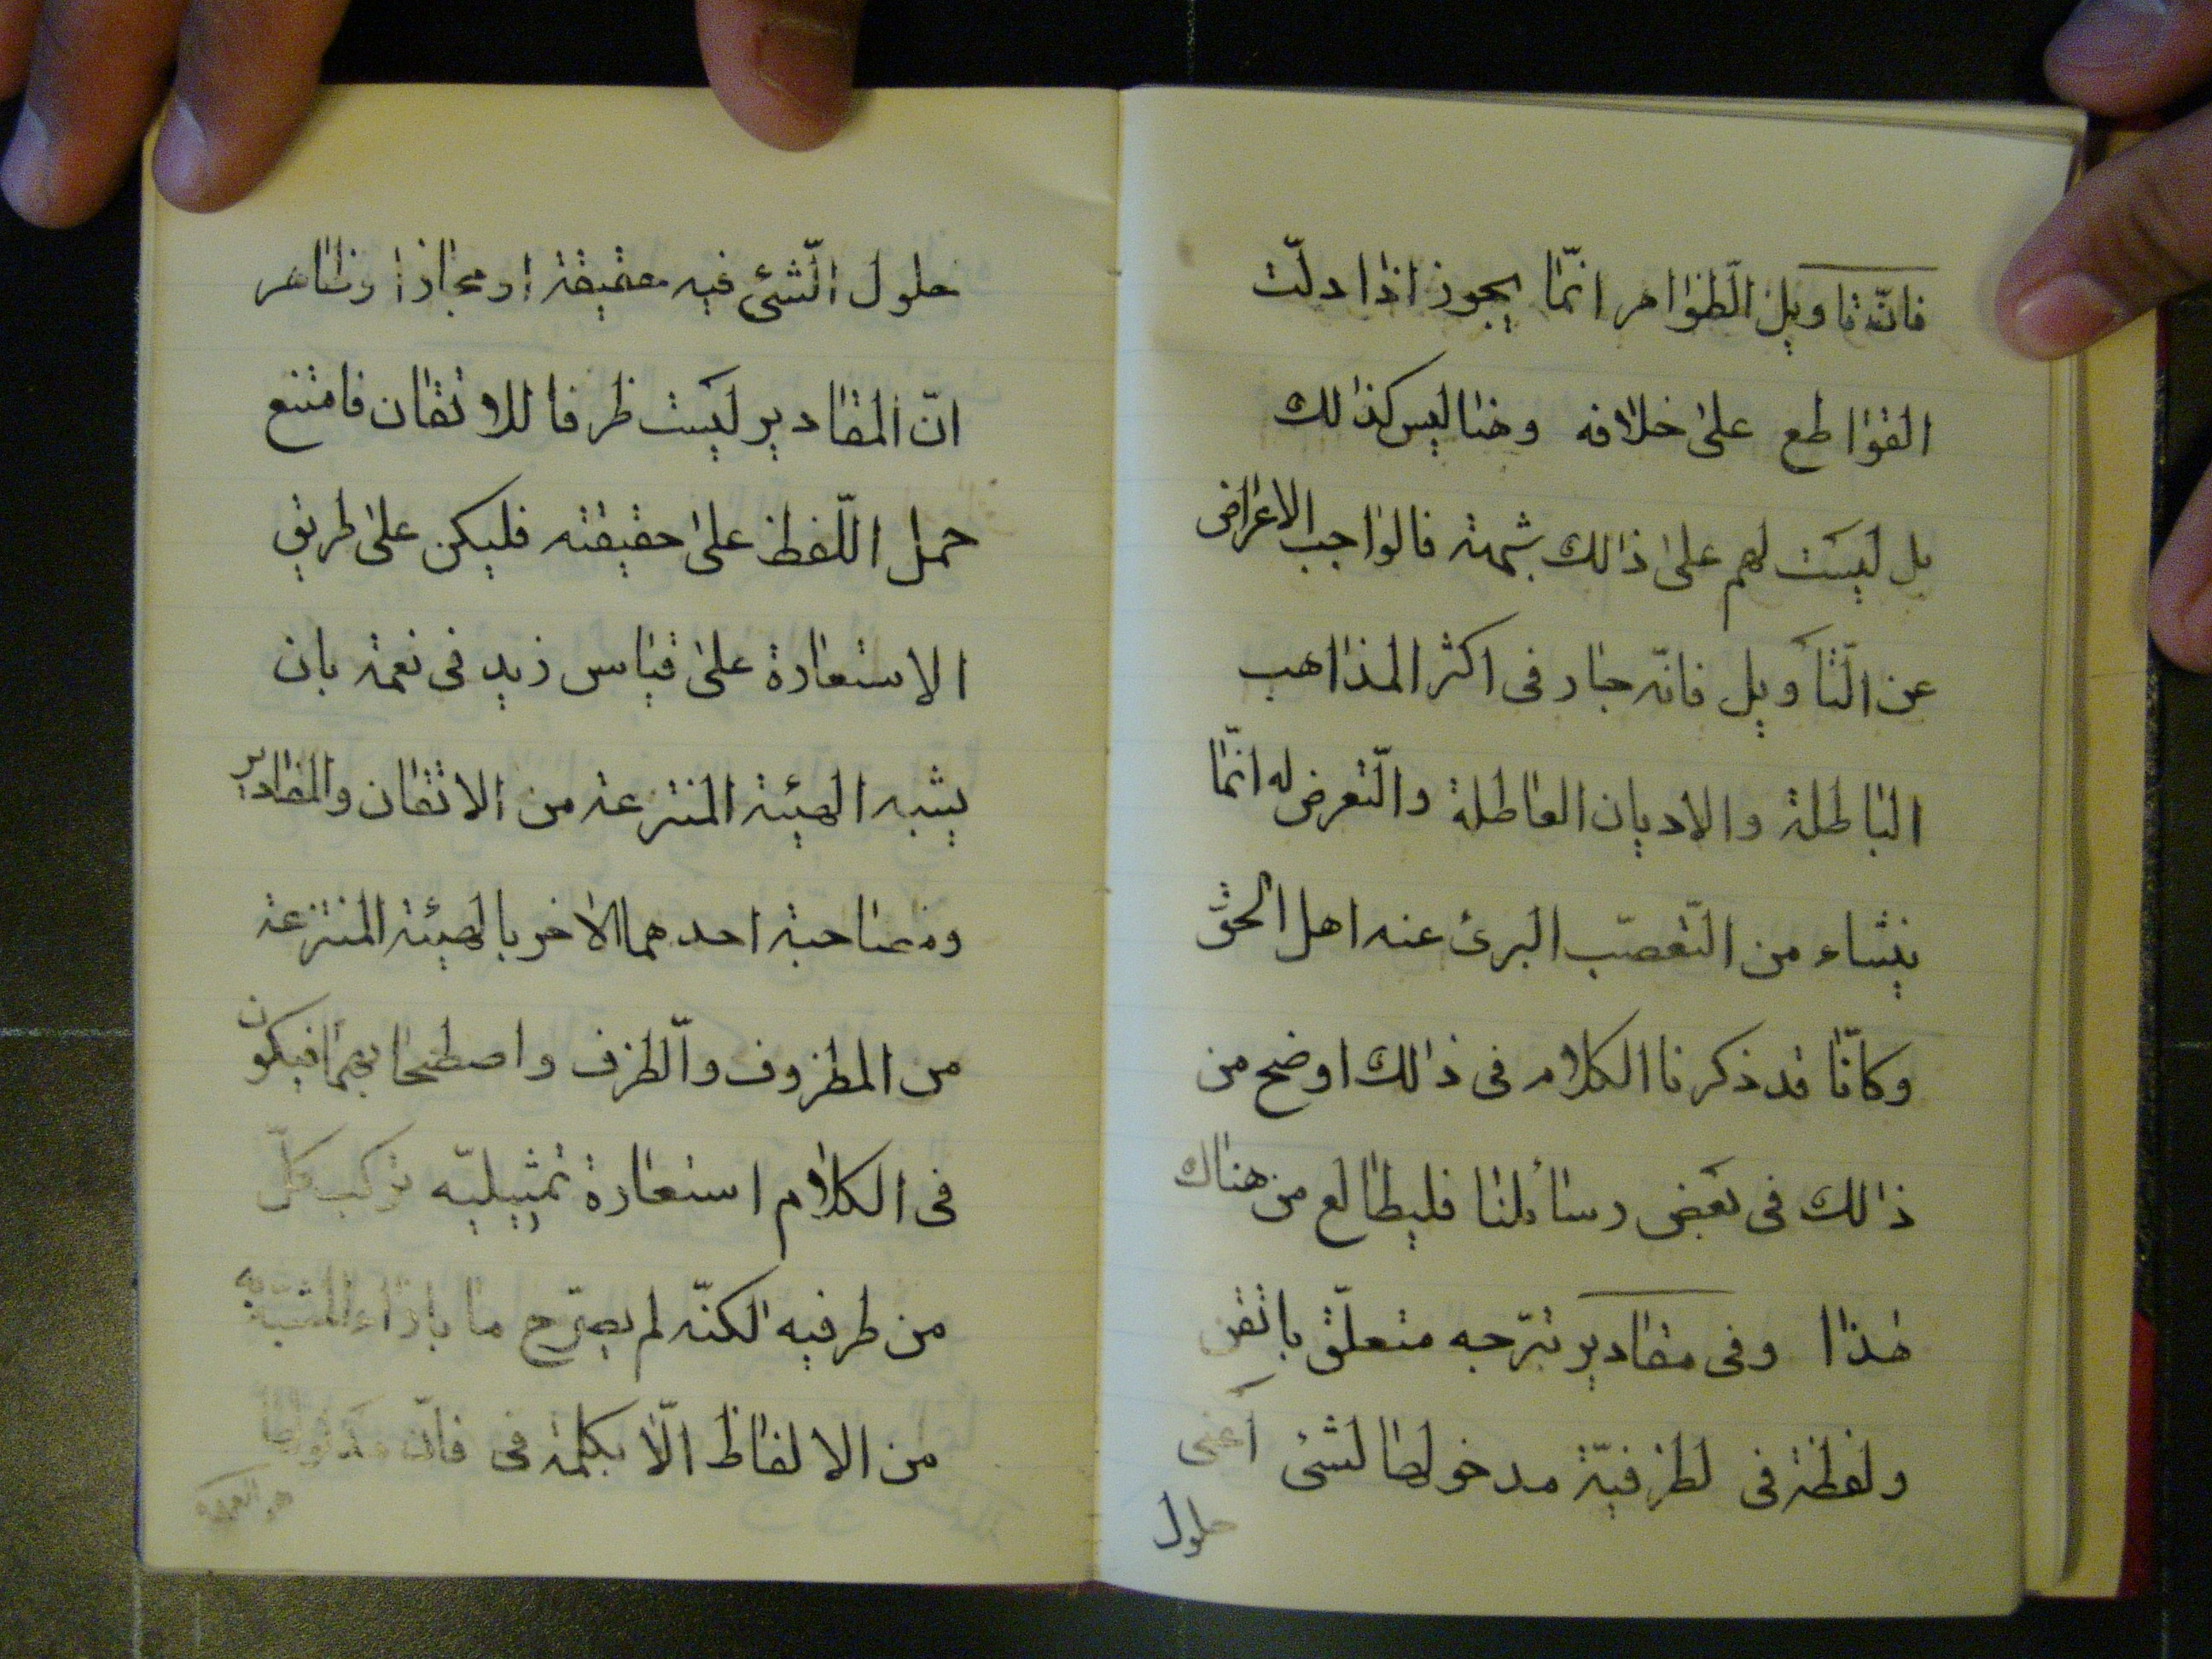 فانّه تاويل الّظواهر انّما يجوز اذا دلّت
القواطع على خلافه وهنا ليس كذالك
بل ليست لهم على ذالك بشبهة فالواجب الاعراض
عن الّتأويل فانّه جار فى اكثر المذاهب
الباطلة والاديان العاطلة والّتعرض له انّما
ينشاء من الّتعصّب البرئ عنه اهل الحقّ
وكانّا قد ذكرنا الكلام فى ذالك اوضح من
ذالك فى بعض رسائلنا فليطالع من هناك
هذا وفى مقادير تبرّجه متعلّق باتقن
ولفظة فى لظرفيّة مدخولها لشئ اعنى
حلول
حلول الّشئ فيه حقيقة او مجازا وظاهر
انّ المقادير ليست ظرفا للاتقان فامتنع
حمل الّلفظ على حقيقته فليكن على طريق
الاستعارة على قياس زيد فى نعمة بان
يشبه الهيئة المنتزعة من الاتقان والمقادير
ومصاحبة احدهما الاخر بالهيئة المنتزعة
من المظروف والّظرف واصطحابهما فيكون
فى الكلام استعارة تمثيليّه تركب كلّ
من طرفيه لكنّه لم يصرّح ما بازاء المشبّه به
من الالفاظ الّا بكلمة فى فانّ مدلولها
هو العمدة